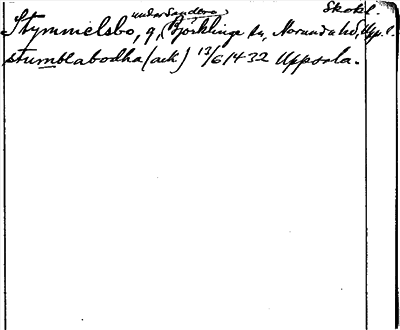 Skokl.
under Sandbro
Stymmelsbo, g, Björklinge sn, Norunda hd, Upp. l.
stumblabodha (ack) 13/6 1432 Uppsala.